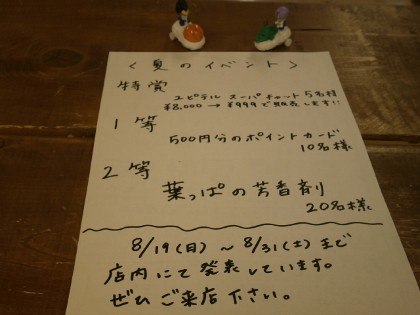 〈夏のイベント〉
特賞
ユピテル スーパーキャット 5名様
¥8,000 → ¥999で販売します!!
1等
500円分のポイントカード
10名様
2等
葉っぱの芳香剤
20名様
8/19(日) 〜 8/31(土)まで
店内にて発表しています。
ぜひご来店下さい。